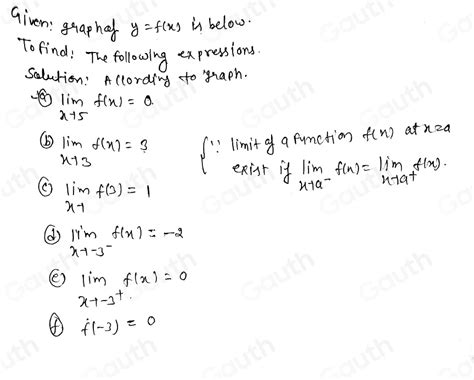 Given: graph of y = f(x) is below.
To find: The following expressions.
Solution: According to graph.
(a) lim f(x) = 0
x→5
(b) lim f(x) = 3
x→3
(c) lim f(x) = 1
x→1
{∵ limit of a function f(x) at x=a
exist if lim f(x) = lim f(x).
x→a⁻ x→a⁺
(d) lim f(x) = -2
x→-3⁻
(e) lim f(x) = 0
x→-3⁺.
(f) f(-3) = 0